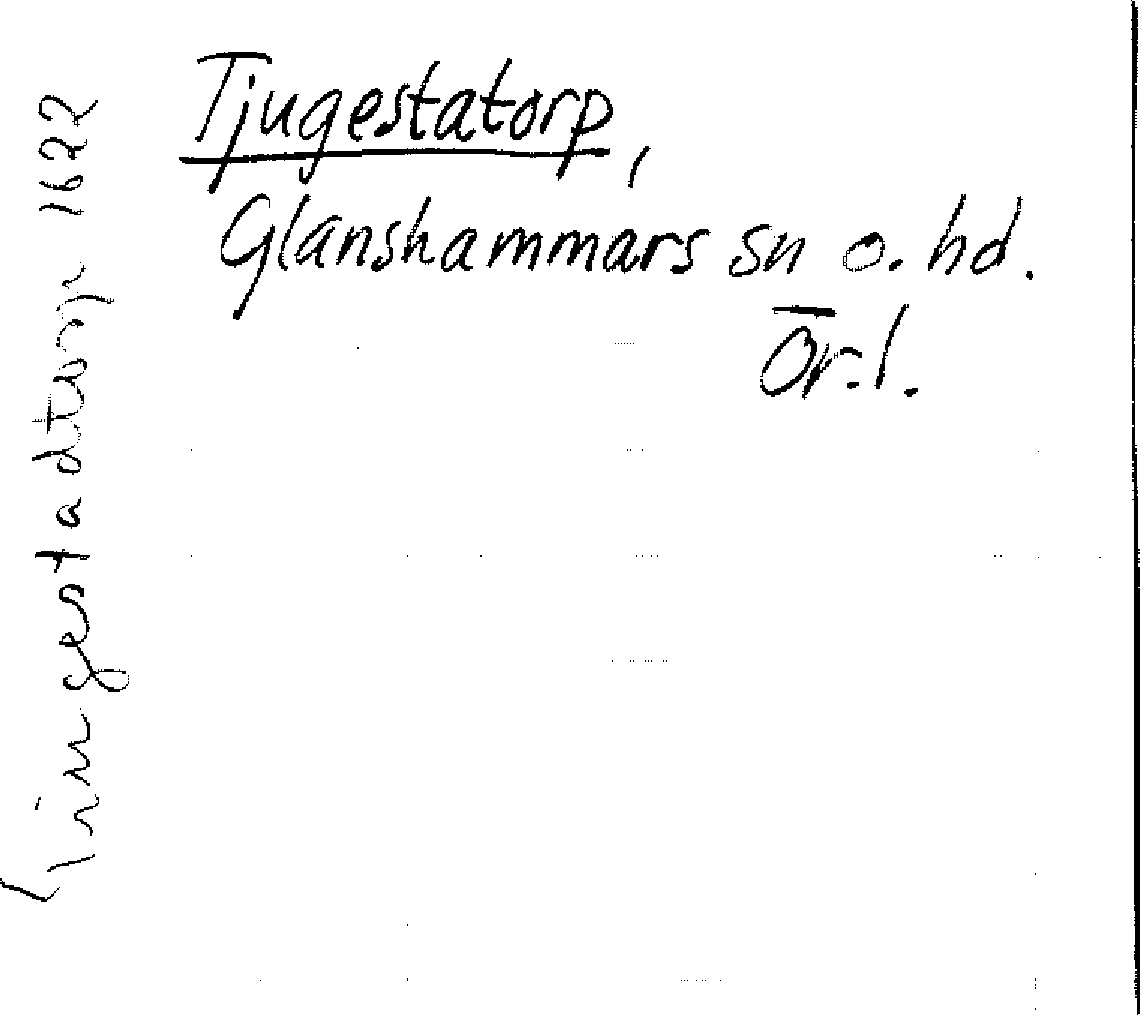 Tjugestatorp,
Glanshammars sn o. hd.
Ör.l.
Tiugestadtorp 1622